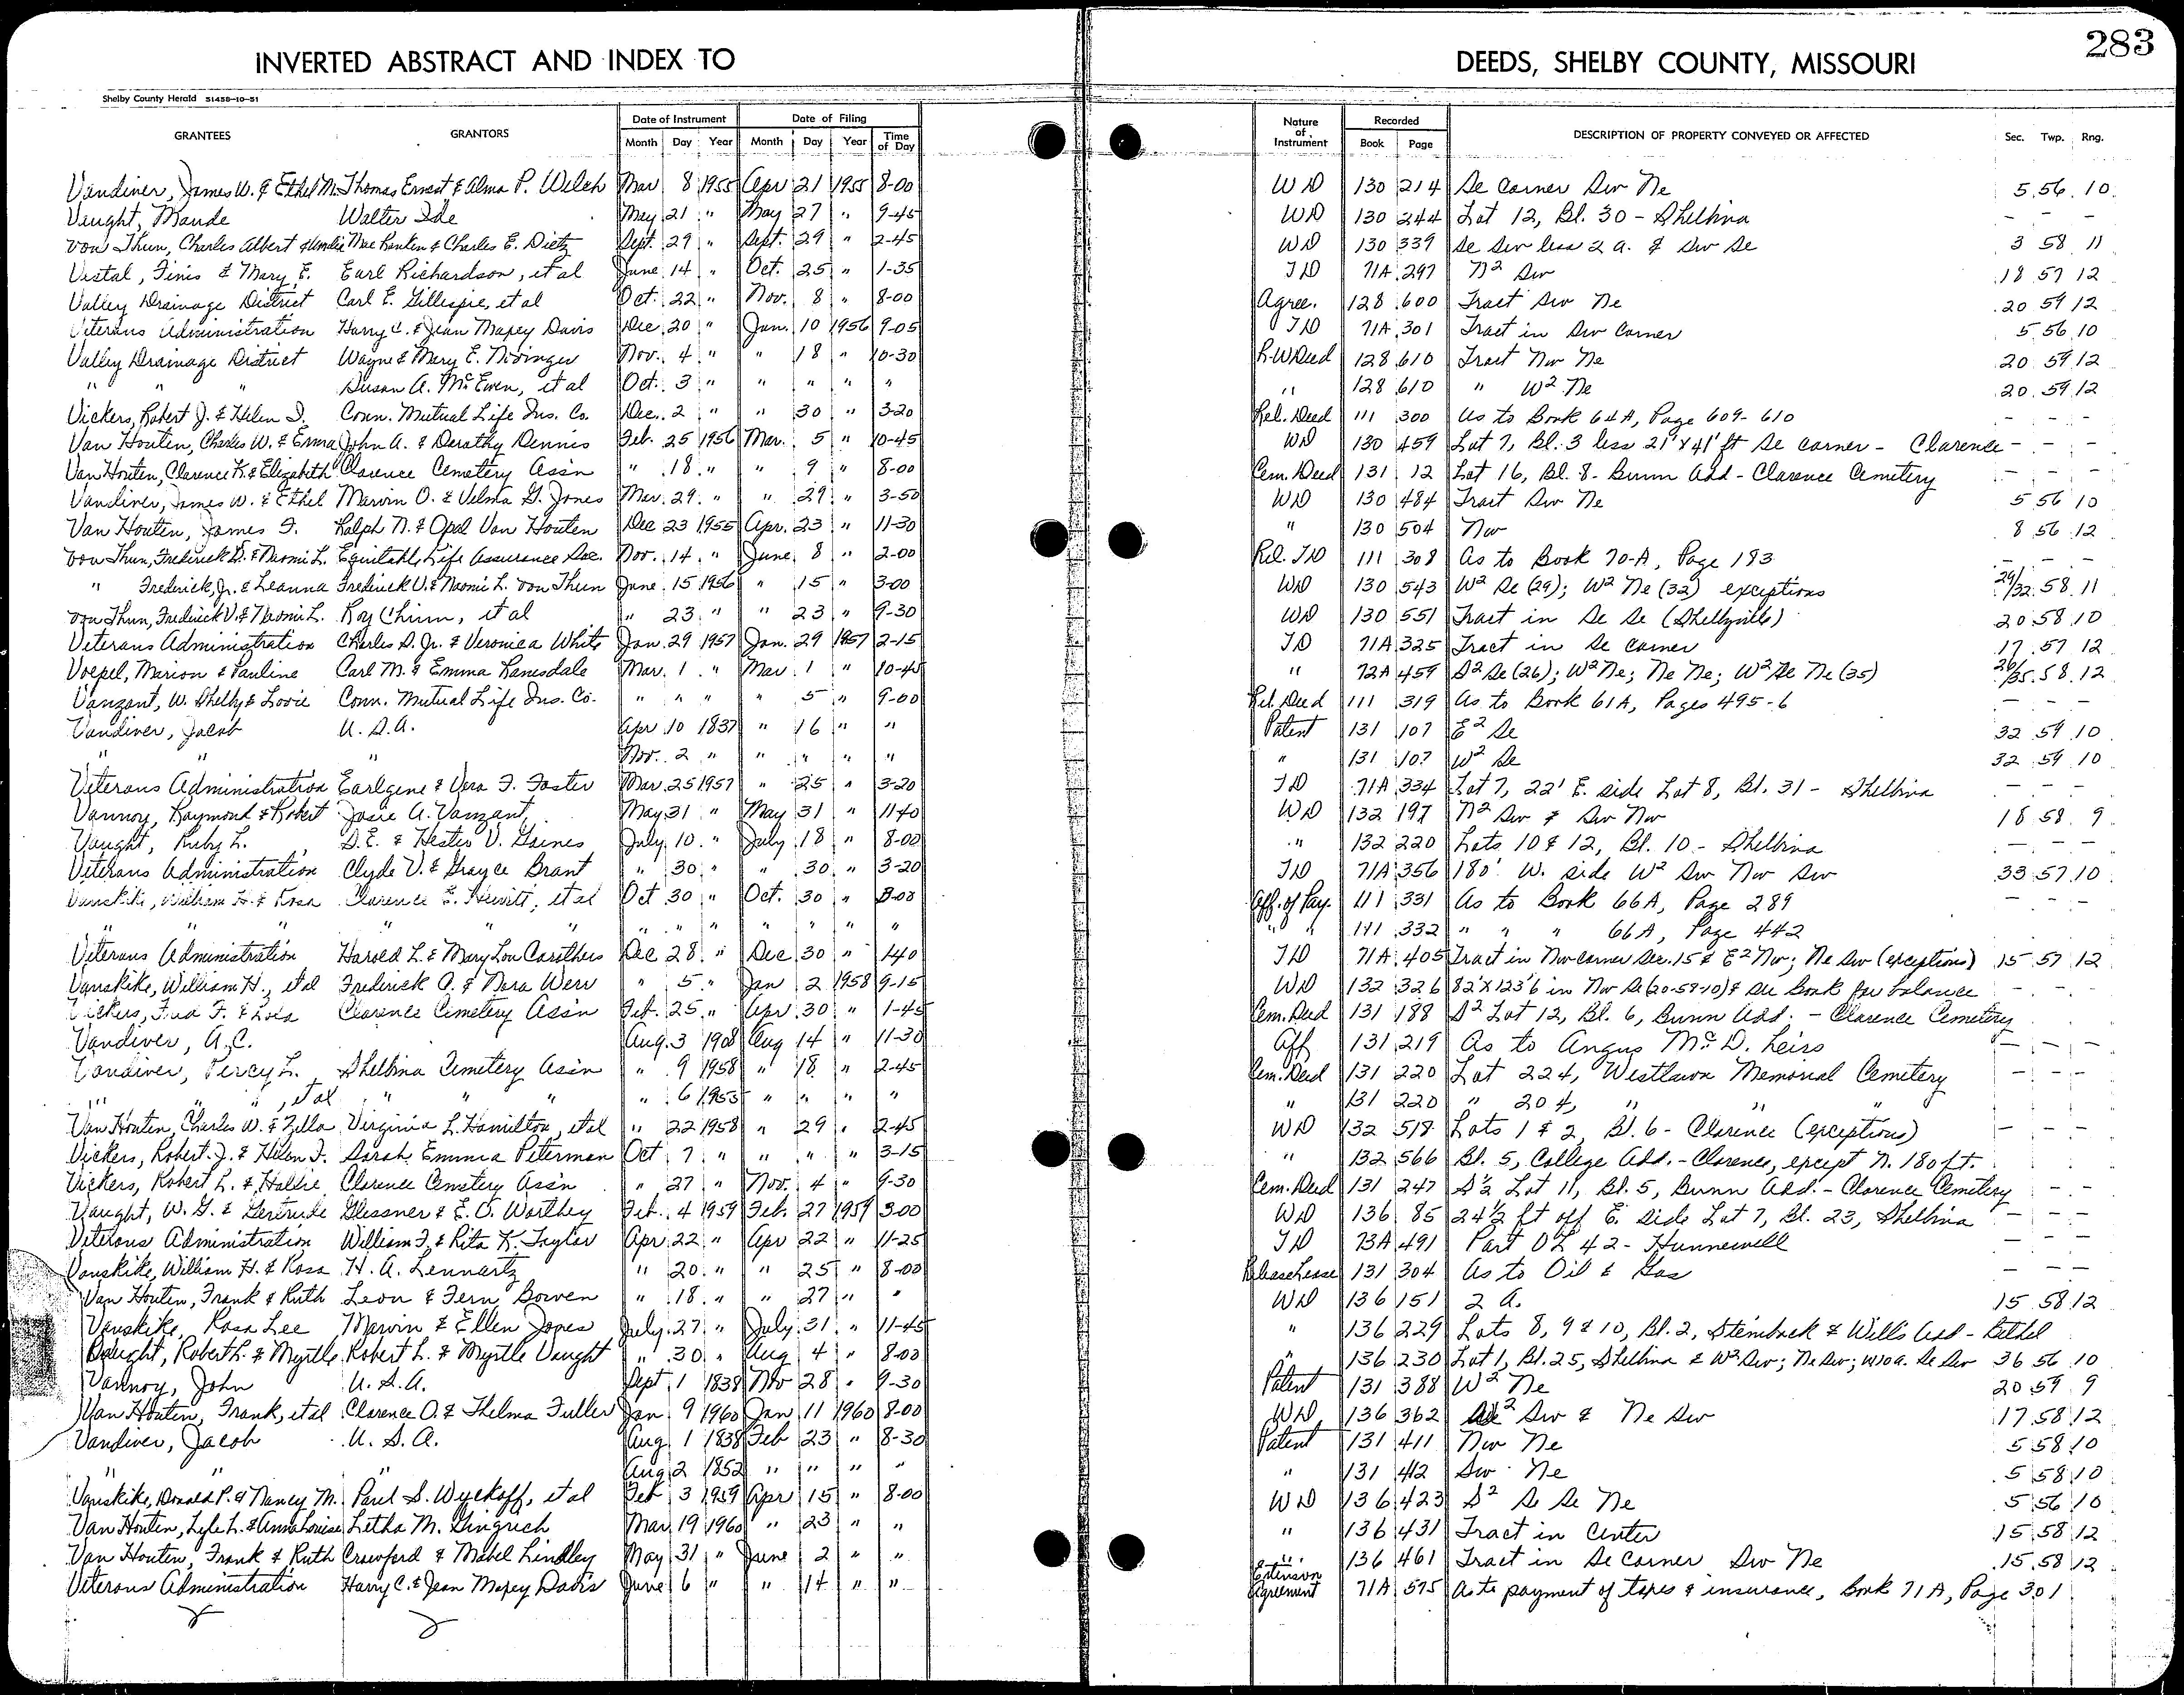 283
INVERTED ABSTRACT AND INDEX TO DEEDS, SHELBY COUNTY, MISSOURI
Shelby County Herald 51458-10-51
GRANTEES GRANTORS Date of Instrument Date of Filing Nature of Instrument Recorded DESCRIPTION OF PROPERTY CONVEYED OR AFFECTED Sec. Twp. Rng.
Month Day Year Month Day Year Time of Day Book Page
Vandiver, James W. & Ethel M. Thomas Ernest & Alma P. Welch Mar 8 1955 Apr 21 1955 8-00 WD 130 214 Se Corner Sw Ne 5 56 10
Vaught, Maude Walter Ide May 21 " May 27 " 9-45 WD 130 244 Lot 12, Bl. 30 - Shelbina - - -
von Thun, Charles Albert & Mae Rankin & Charles E. Dietz Sept. 29 " Sept. 29 " 2-45 WD 130 339 Se Sw less 2 a. & Sw Se 3 58 11
Vestal, Finis & Mary E. Earl Richardson, et al June 14 " Oct. 25 " 1-35 TD 71A 297 N² Sw 18 57 12
Valley Drainage District Carl E. Gillespie, et al Oct. 22 " Nov. 8 " 8-00 Agree. 128 600 Tract Sw Ne 20 59 12
Veterans Administration Harry C. & Jean Maxey Davis Dec 20 " Jan. 10 1956 9-05 TD 71A 301 Tract in Sw Corner 5 56 10
Valley Drainage District Wayne & Mary E. Nisinger Nov. 4 " " 18 " 10-30 R-W Deed 128 610 Tract Nw Ne 20 59 12
" " " Susan A. McEwen, et al Oct. 3 " " " " " " 128 610 " W² Ne 20 59 12
Vickers, Robert J. & Helen I. Conn. Mutual Life Ins. Co. Dec. 2 " " 30 " 3-20 Rel. Deed 111 300 As to Book 64A, Page 609-610 - - -
Van Houten, Charles W. & Erma John A. & Dorothy Dennis Feb. 25 1956 Mar. 5 " 10-45 WD 130 459 Lot 7, Bl. 3 less 21' X 41' ft Se corner - Clarence - - -
Van Houten, Clarence K. & Elizabeth Clarence Cemetery Ass'n " 18 " " 9 " 8-00 Cem. Deed 131 12 Lot 16, Bl. 8 - Bunn Add - Clarence Cemetery - - -
Vandiver, James W. & Ethel Marvin O. & Velma G. Jones Mar. 29 " " 29 " 3-50 WD 130 484 Tract Sw Ne 5 56 10
Van Houten, James F. Ralph N. & Opal Van Houten Dec 23 1955 Apr. 23 " 11-30 " 130 504 Nw 8 56 12
von Thun, Frederick & Naomi L. Equitable Life Assurance Soc. Nov. 14 " June 8 " 2-00 Rel. TD 111 308 As to Book 70-A, Page 183 - - -
" Frederick, Jr. & Leanna Frederick V. & Naomi L. von Thun June 15 1956 " 15 " 3-00 WD 130 543 W² Se (29); W² Ne (32) exceptions 29/32 58 11
von Thun, Frederick V. & Naomi L. Roy Chinn, et al " 23 " " 23 " 9-30 WD 130 551 Tract in Se Se (Shelbyville) 20 58 10
Veterans Administration Charles S. Jr. & Veronica White Jan. 29 1957 Jan. 29 1957 2-15 TD 71A 325 Tract in Se Corner 17 57 12
Voepel, Marion & Pauline Carl M. & Emma Ransdale Mar. 1 " Mar 1 " 10-45 " 72A 459 S² Se (26); W² Ne; Ne Ne; W² Se Ne (35) 26/35 58 12
Vanzant, W. Shelby & Lovie Conn. Mutual Life Ins. Co. " " " " 5 " 9-00 Rel. Deed 111 319 As to Book 61A, Pages 495-6 - - -
Vandiver, Jacob U.S.A. Apr 10 1837 " 16 " " Patent 131 107 E² Se 32 59 10
" " " Nov. 2 " " " " " " 131 107 W² Se 32 59 10
Veterans Administration Earlgene & Vera F. Foster Mar. 25 1957 " 25 " 3-20 TD 71A 334 Lot 7, 22' E. side Lot 8, Bl. 31 - Shelbina - - -
Vannoy, Raymond & Robert Josie A. Vanzant May 31 " May 31 " 11-40 WD 132 197 N² Sw & Sw Nw 18 58 9
Vaught, Ruby L. D.E. & Hester V. Gaines July 10 " July 18 " 8-00 " 132 220 Lots 10 & 12, Bl. 10 - Shelbina - - -
Veterans Administration Clyde V. & Grayce Brant " 30 " " 30 " 3-20 TD 71A 356 180' W. side W² Sw Nw Sw 33 57 10
Vanskike, William H. & Rosa Clarence E. Hewitt, et al Oct 30 " Oct. 30 " 8-00 Aff. of Pay. 111 331 As to Book 66A, Page 289 - - -
" " " " " " " " " " " " " " " 111 332 " " " 66A, Page 442
Veterans Administration Harold L. & Mary Lou Carothers Dec 28 " Dec 30 " 1-40 TD 71A 405 Tract in Nw corner Sec. 15 & E² Nw; Ne Sw (exceptions) 15 57 12
Vanskike, William H., et al Frederick O. & Nora Werr " 5 " Jan 2 1958 9-15 WD 132 326 82' X 123'6 in Nw Se (20-59-10) & See book for balance - - -
Vickers, Fred F. & Lola Clarence Cemetery Ass'n Feb. 25 " Apr. 30 " 1-45 Cem. Deed 131 188 S² Lot 12, Bl. 6, Bunn Add. - Clarence Cemetery
Vandiver, A.C. Aug. 3 1908 Aug 14 " 11-30 Aff 131 219 As to Angus McD. heirs - - -
Vandiver, Percy L. Shelbina Cemetery Ass'n " 9 1958 " 18 " 2-45 Cem. Deed 131 220 Lot 224, Westlawn Memorial Cemetery - - -
" " ", et al " " " " 6 1955 " " " " " 131 220 " 204, " " "
Van Houten, Charles W. & Zella Virginia L. Hamilton, et al " 22 1958 " 29 " 2-45 WD 132 518 Lots 1 & 2, Bl. 6 - Clarence (exceptions) - - -
Vickers, Robert J. & Helen I. Sarah Emma Peterman Oct 7 " " " " 3-15 " 132 566 Bl. 5, College Add. - Clarence, except N. 180 ft. - - -
Vickers, Robert L. & Hallie Clarence Cemetery Ass'n " 27 " Nov. 4 " 9-30 Cem. Deed 131 247 S½ Lot 11, Bl. 5, Bunn Add. - Clarence Cemetery - -
Vaught, W. G. & Gertrude Glessner & E. O. Worthey Feb. 4 1959 Feb. 27 1959 3-00 WD 136 85 24½ ft off E. side Lot 7, Bl. 23, Shelbina - - -
Veterans Administration William F. & Rita K. Taylor Apr 22 " Apr 22 " 11-25 TD 73A 491 Part OL 42 - Hunnewell - - -
Vanskike, William H. & Rosa H. A. Lennartz " 20 " " 25 " 8-00 Release Lease 131 304 As to Oil & Gas - - -
Van Houten, Frank & Ruth Leon & Fern Bowen " 18 " " 27 " " WD 136 151 2 a. 15 58 12
Vanskike, Rosa Lee Marvin & Ellen Jones July 27 " July 31 " 11-45 " 136 229 Lots 8, 9 & 10, Bl. 2, Steinbach & Wills Add - Bethel
Vaught, Robert L. & Myrtle Robert L. & Myrtle Vaught " 30 " Aug 4 " 8-00 " 136 230 Lot 1, Bl. 25, Shelbina & W² Sw; Ne Sw; W10a. Se Sw 36 56 10
Vannoy, John U.S.A. Sept 1 1838 Nov 28 " 9-30 Patent 131 388 W² Ne 20 59 9
Van Houten, Frank, et al Clarence O. & Thelma Fuller Jan 9 1960 Jan 11 1960 8-00 WD 136 362 Sw & Ne Sw 17 58 12
Vandiver, Jacob U.S.A. Aug 1 1838 Feb 23 " 8-30 Patent 131 411 Nw Ne 5 58 10
" " " Aug 2 1852 " " " " " 131 412 Sw Ne 5 58 10
Vanskike, Donald P. & Nancy M. Paul S. Wyckoff, et al Feb 3 1959 Apr 15 " 8-00 WD 136 423 S² Se Se Ne 5 56 10
Van Houten, Lyle L. & Anna Louise Letha M. Gingrich Mar 19 1960 " 23 " " " 136 431 Tract in Center 15 58 12
Van Houten, Frank & Ruth Crawford & Mabel Lindley May 31 " June 2 " " " 136 461 Tract in Se Corner Sw Ne 15 58 12
Veterans Administration Harry C. & Jean Maxey Davis June 6 " " 14 " " Extension Agreement 71A 575 As to payment of taxes & insurance, Book 71A, Page 301